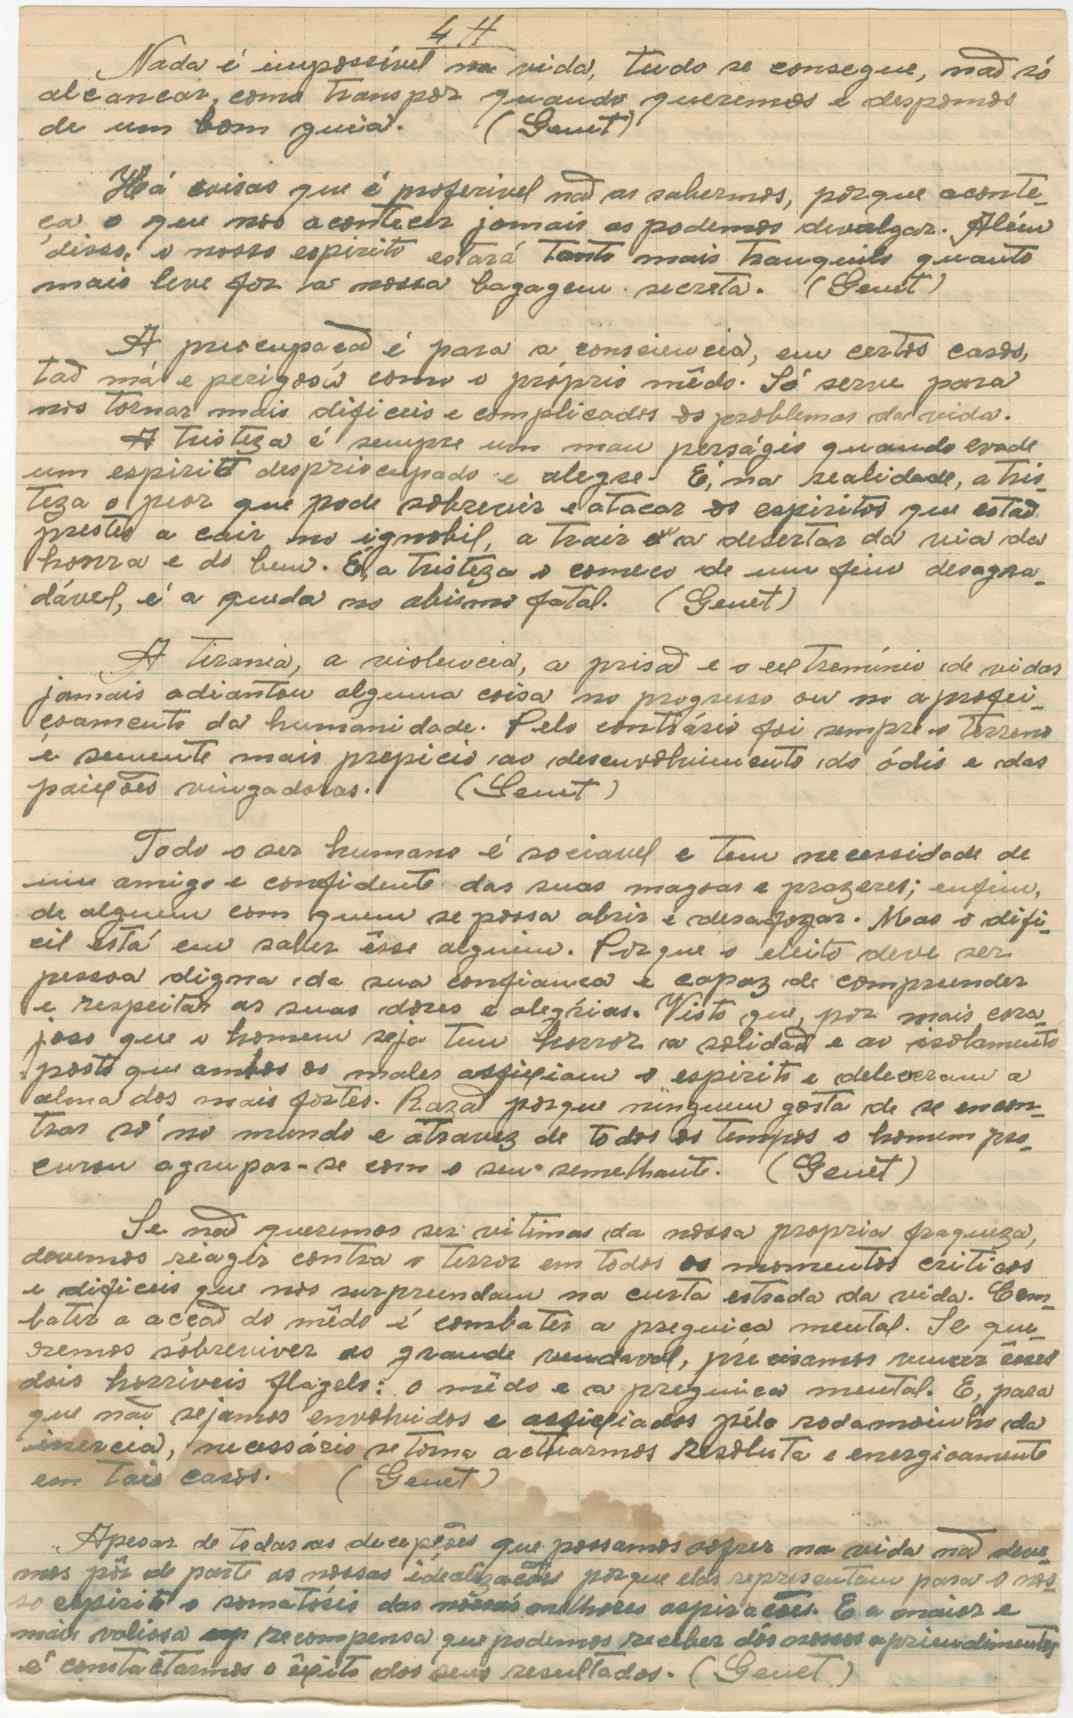 4 H
Nada é impossível na vida, tudo se consegue, não só
alcançar, como transpor quando queremos e despomos
de um bom guia. (Genet)
Há coisas que é proferivel não as sabermos, porque aconte-
ça o que nos acontecer jamais as podemos devulgar. Além
disso, o nosso espirito estará tanto mais tranquilo quanto
mais leve for a nossa bagagem secreta. (Genet)
A preocupação é para a consciencia, em certos casos,
tão má e perigosa como o próprio mêdo. Só serve para
nos tornar mais dificeis e complicados os problemas da vida.
A tristeza é sempre um mau perságio quando evade
um espirito despriocupado e alegre. É, na realidade, a tris-
teza o peor que pode sobrevir e atacar os espiritos que estão
prestes a cair no ignobil, a trair e a desertar da via da
honra e do bem. É, a tristeza o começo de um fim desagra-
dável, é a queda no abismo fatal. (Genet)
A tirania, a violencia, a prisão e o extremínio de vidas
jamais adiantou alguma coisa no progresso ou no aprofei-
çoamento da humanidade. Pelo contrário foi sempre o terreno
e semente mais prepicio ao desenvolvimento do ódio e das
paixões vingadoras. (Genet)
Todo o ser humano é sociavel e tem necessidade de
um amigo e confidente das suas magoas e prazeres; enfim,
de alguem com quem se possa abrir e desafogar. Mas o difi-
cil está em saber êsse alguém. Porque o eleito deve ser
pessoa digna da sua confiança e capaz de compreender
e respeitar as suas dores e alegrias. Visto que, por mais cora-
joso que o homem seja tem horror a solidão e ao isolamento
posto que ambos os males asfixiam o espirito e deleceram a
alma dos mais fortes. Razão porque ninguem gosta de se encon-
trar só no mundo e atravez de todos os tempos o homem pro-
curou agrupar-se com o seu semelhante. (Genet)
Se não queremos ser vitimas da nossa propria fraqueza,
devemos riagir contra o terror em todos os momentos criticos
e dificeis que nos surpreendam na curta estrada da vida. Com-
bater a acção do mêdo é combater a preguiça mental. Se que-
remos sobreviver ao grande vendaval, precisamos vencer êsses
dois horriveis flagelo: o mêdo e a preguiça mental. E, para
que não sejamos envolvidos e asfixiados pélo rodamoinho da
inercia, necessário se torna actuarmos resoluta e energicamente
em tais casos. (Genet)
Apesar de todas as decepções que possamos sofrer na vida não deve-
mos pôr de parte as nossas idealizações porque elas representam para o nos-
so espirito o somatório das nossas melhores aspirações. E a maior e
mais valiosa recompensa que podemos receber dos nossos apriendimentos
é constactarmos o êxito dos seus resultados. (Genet)